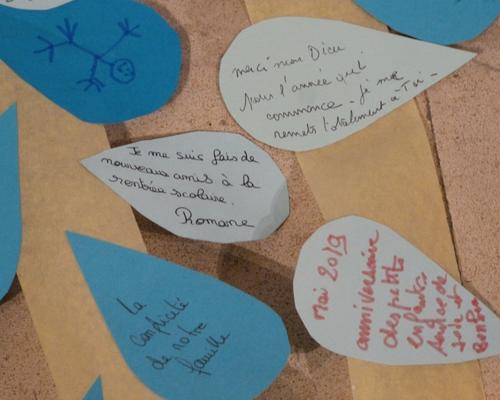 merci mon Dieu
Pour l'année qui
commence - je me
remets totalement à Toi -
Je me suis fais de
nouveaux amis à la
rentrée scolaire.
Romane
La
complicité
de notre
famille
Mai 2019
anniversaire
des petits
enfants
joie